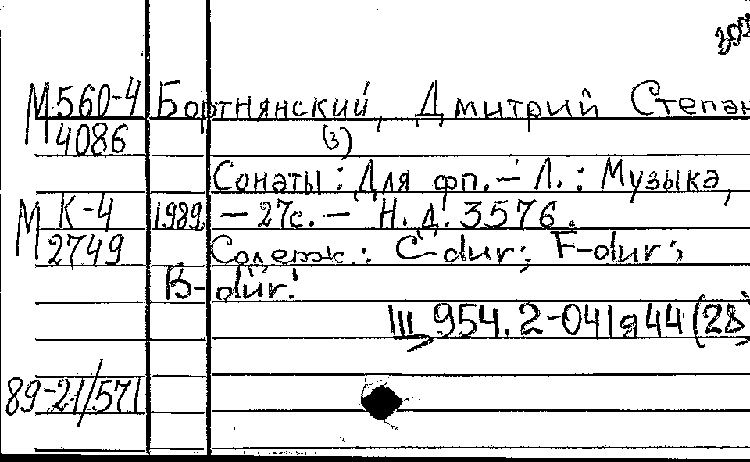 М 560-4 Бортнянский, Дмитрий Степан
4086 (3)
Сонаты : Для фп. – Л. : Музыка,
М К-4 1989 – 27с. – Н. д. 3576.
2749 Содерж.: C-dur; F-dur;
B-dur.
Щ 954.2-041я44(28)
89-21/571